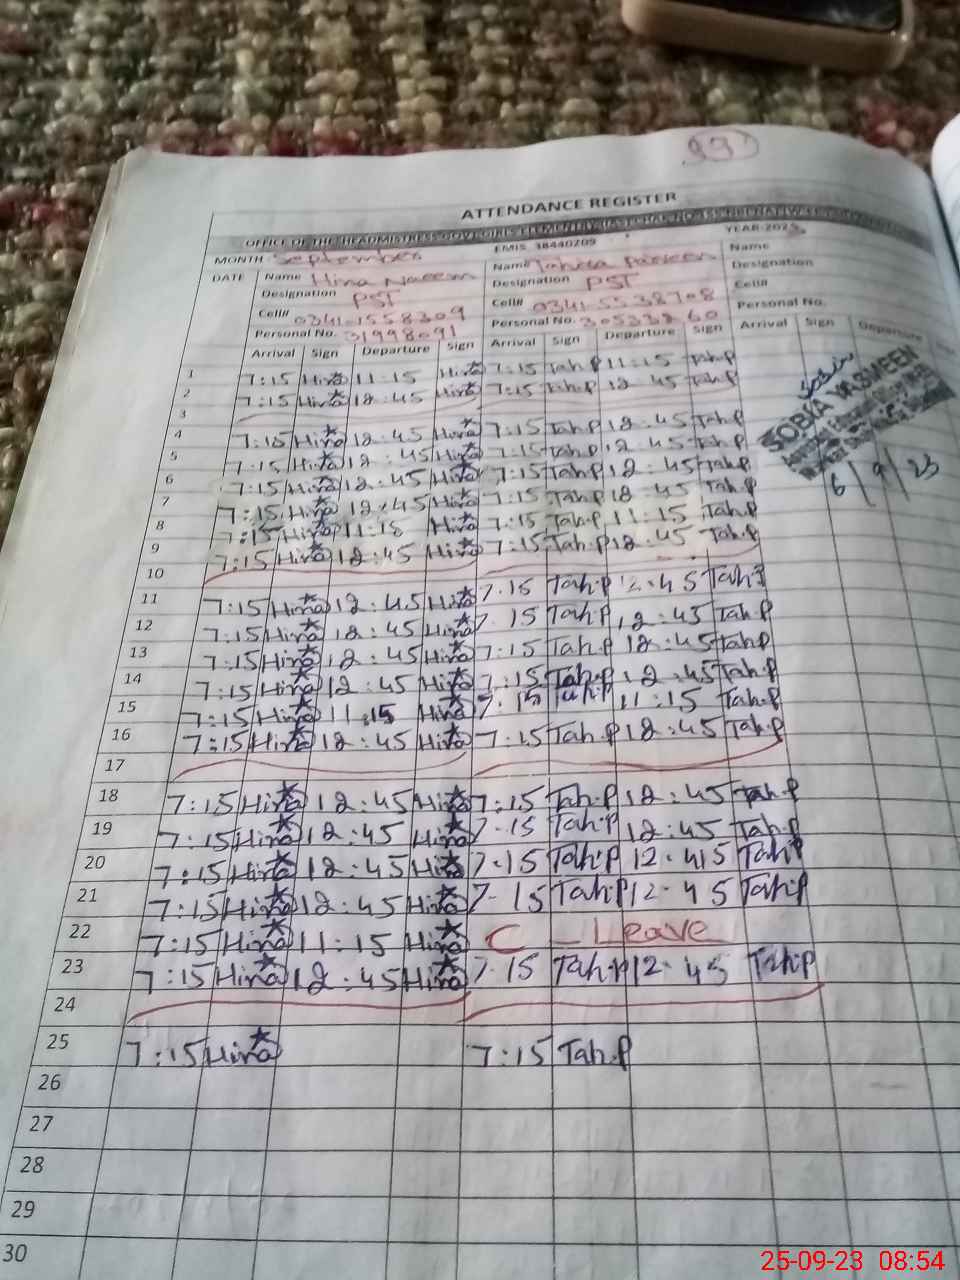 ATTENDANCE REGISTER
OFFICE OF THE HEADMISTRESS GOVT. GIRLS ELEMENTRY
EMIS 38440209
MONTH September YEAR-2023
DATE Name Hina Naeem Name Tahira Parveen Name
Designation PST Designation PST Designation
Cell# 0341-1558309 Cell# 0341-5538708 Cell#
Personal No. 31998091 Personal No. 30533860 Personal No.
Arrival Sign Departure Sign Arrival Sign Departure Sign Arrival Sign Departure
1 7:15 Hina 11:15 Hina 7:15 Tah.P 11:15 Tah.P
2 7:15 Hina 12:45 Hina 7:15 Tah.P 12:45 Tah.P
3
4 7:15 Hina 12:45 Hina 7:15 Tah.P 12:45 Tah.P
5 7:15 Hina 12:45 Hina 7:15 Tah.P 12:45 Tah.P
6 7:15 Hina 12:45 Hina 7:15 Tah.P 12:45 Tah.P
7 7:15 Hina 12:45 Hina 7:15 Tah.P 12:45 Tah.P
8 7:15 Hina 11:15 Hina 7:15 Tah.P 11:15 Tah.P
9 7:15 Hina 12:45 Hina 7:15 Tah.P 12:45 Tah.P
10
11 7:15 Hina 12:45 Hina 7.15 Tah.P 12.45 Tah.P
12 7:15 Hina 12:45 Hina 7.15 Tah.P 12:45 Tah.P
13 7:15 Hina 12:45 Hina 7:15 Tah.P 12:45 Tah.P
14 7:15 Hina 12:45 Hina 7:15 Tah.P 12:45 Tah.P
15 7:15 Hina 11:15 Hina 7:15 Tah.P 11:15 Tah.P
16 7:15 Hina 12:45 Hina 7:15 Tah.P 12:45 Tah.P
17
18 7:15 Hina 12:45 Hina 7:15 Tah.P 12:45 Tah.P
19 7:15 Hina 12:45 Hina 7.15 Tah.P 12:45 Tah.P
20 7:15 Hina 12:45 Hina 7.15 Tah.P 12.45 Tah.P
21 7:15 Hina 12:45 Hina 7.15 Tah.P 12.45 Tah.P
22 7:15 Hina 11:15 Hina C - Leave
23 7:15 Hina 12:45 Hina 7.15 Tah.P 12.45 Tah.P
24
25 7:15 Hina 7:15 Tah.P
26
27
28
29
30
SOBIA YASMEEN
6/9/23
25-09-23 08:54